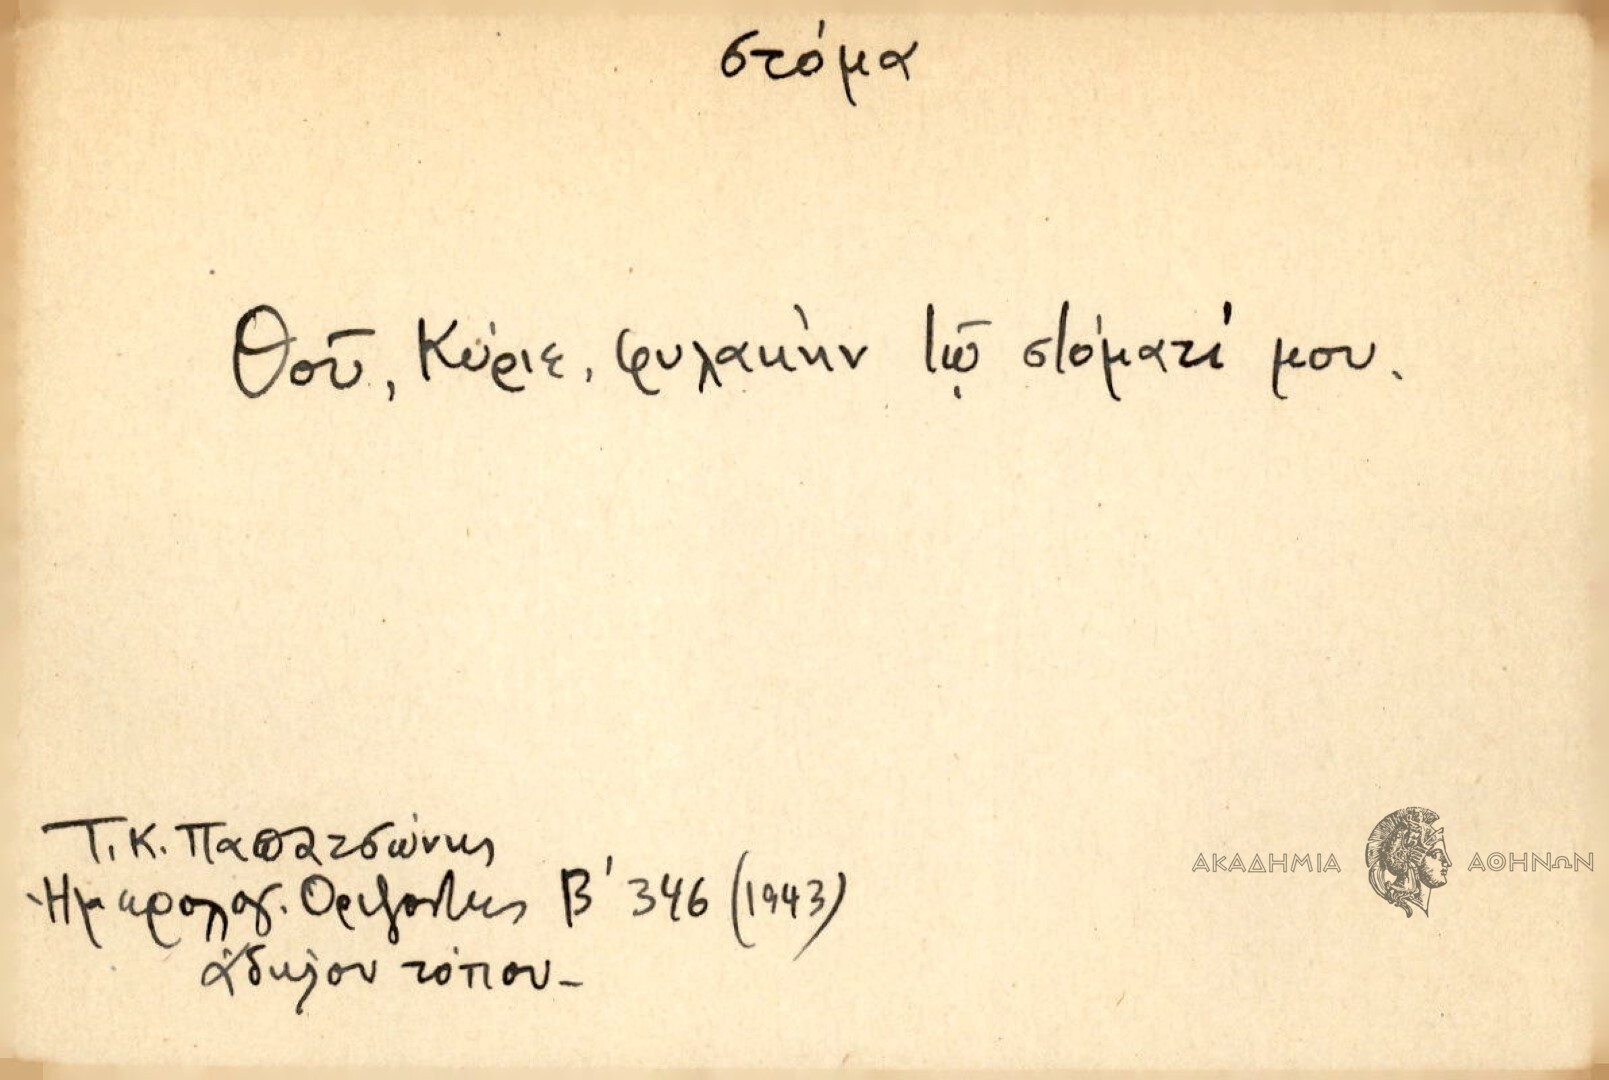 στόμα
Θοῦ, Κύριε, φυλακὴν τῷ στόματί μου.
Τ. Κ. Παπατσώνης
Ἡμερολόγ. Ορίζοντες Β' 346 (1943)
ἀδήλου τόπου_
ΑΚΑΔΗΜΙΑ ΑΘΗΝΩΝ